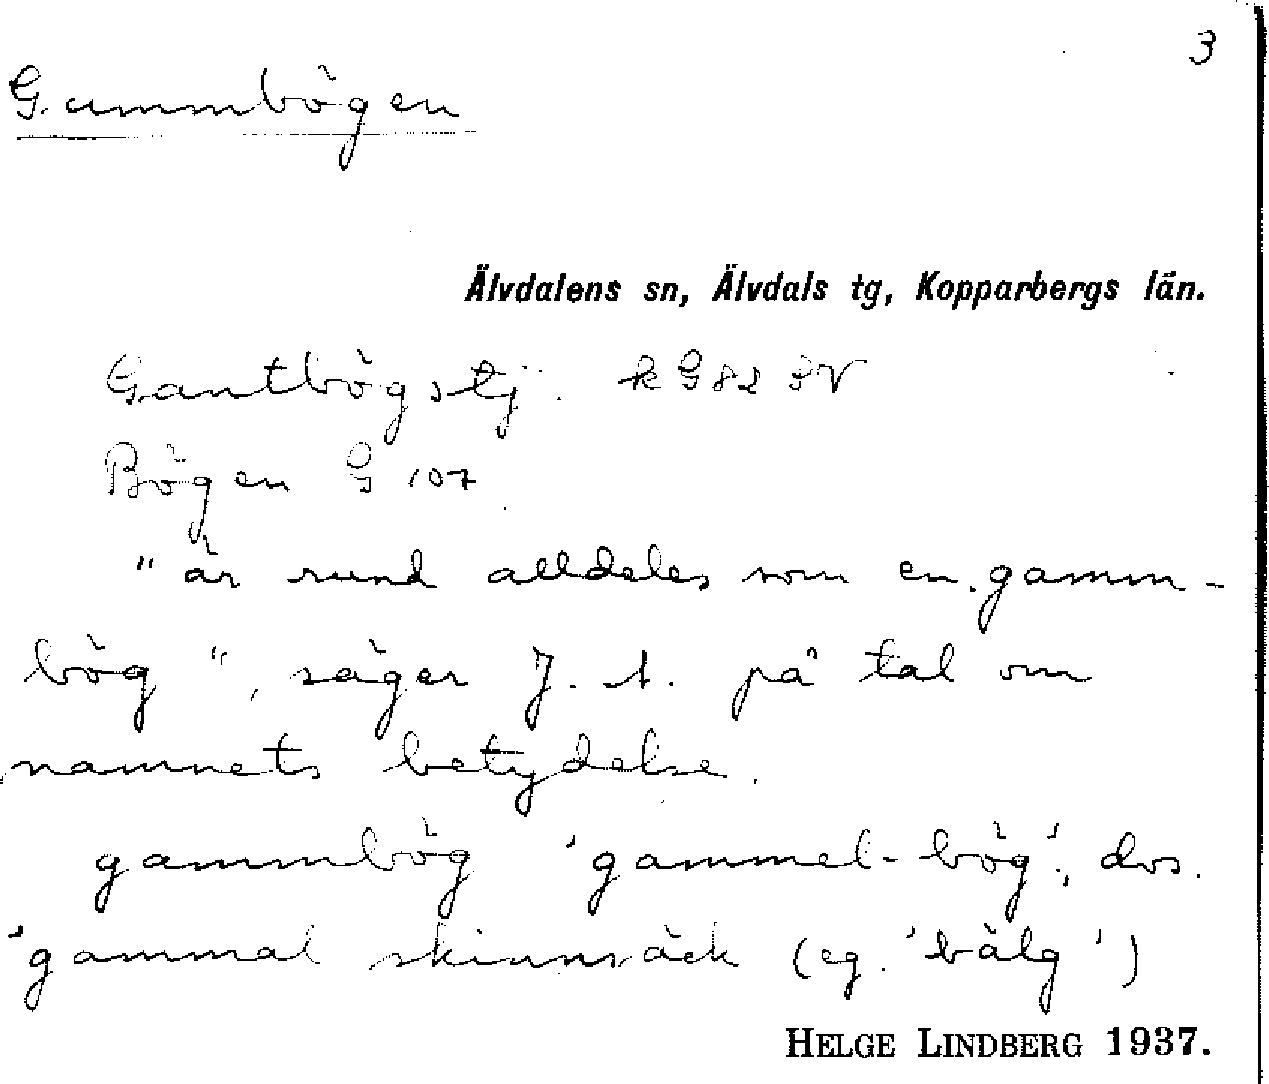 3
Gammbögen
Älvdalens sn, Älvdals tg, Kopparbergs län.
Gantbögstj. k G 82 SV
Bögen G 107
" är rund alldeles som en gamm-
bög", säger J. A. på tal om
namnets betydelse.
gammbög 'gammel-bög', dvs.
'gammal skinnsäck (eg. 'bälg')
HELGE LINDBERG 1937.